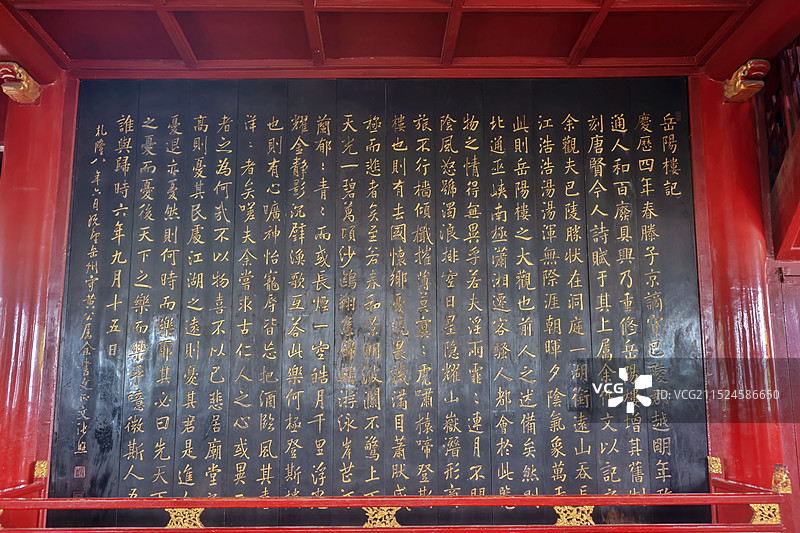 岳陽樓記
慶歷四年春滕子京謫守巴陵郡越明年政
通人和百廢具興乃重修岳陽樓增其舊制
刻唐賢今人詩賦于其上屬余作文以記之
余觀夫巴陵勝狀在洞庭一湖銜遠山吞長
江浩浩湯湯渾無際涯朝暉夕陰氣象萬千
此則岳陽樓之大觀也前人之述備矣然則
北通巫峽南極瀟湘遷客騷人都會於此覽
物之情得無異乎若夫淫雨霏〻連月不開
陰風怒號濁浪排空日星隱耀山嶽潛形商
旅不行檣傾檝摧薄莫冥〻虎嘯猿啼登斯
樓也則有去國懷鄉憂讒畏譏滿目蕭然感
極而悲者矣至若春和景明波瀾不驚上下
天光一碧萬頃沙鷗翔集錦鱗游泳岸芷汀
蘭郁〻青〻而或長煙一空皓月千里浮光
耀金靜影沉璧漁歌互荅此樂何極登斯樓
也則有心曠神怡寵辱皆忘把酒臨風其喜
洋〻者矣嗟夫余嘗求古仁人之心或異二
者之為何哉不以物喜不以己悲居廟堂之
高則憂其民處江湖之遠則憂其君是進亦
憂退亦憂然則何時而樂耶其必曰先天下
之憂而憂後天下之樂而樂乎噫微斯人吾
誰與歸時六年九月十五日
乾隆八年六月岳州守黃公屬余書文張照
VCG.COM/1524586650